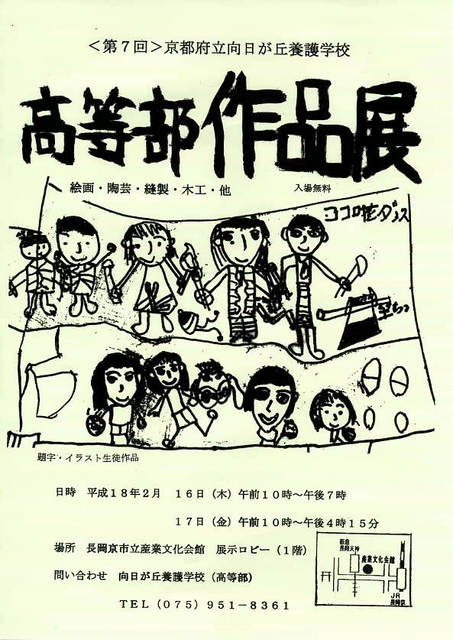 ＜第７回＞京都府立向日が丘養護学校
高等部作品展
絵画・陶芸・縫製・木工・他
入場無料
題字・イラスト生徒作品
日時 平成１８年２月 １６日（木）午前１０時～午後７時
１７日（金）午前１０時～午後４時１５分
場所 長岡京市立産業文化会館 展示ロビー（１階）
問い合わせ 向日が丘養護学校（高等部）
ＴＥＬ（０７５）９５１-８３６１
阪急
長岡天神
産業文化会館
ＪＲ
長岡京